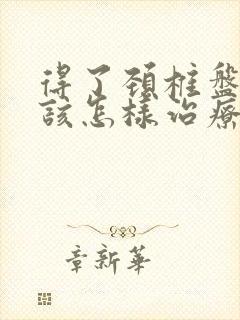 得了頸柱盤
該怎樣治療
章新華